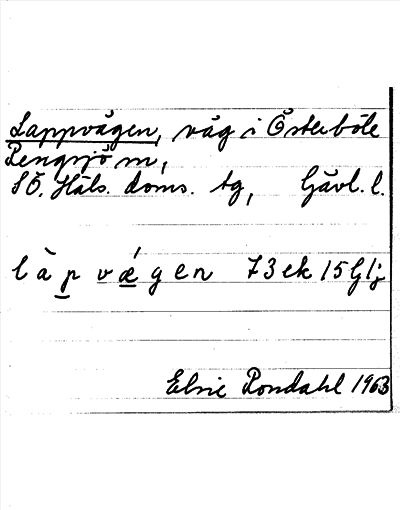 Lappvägen, väg i Österböle
Rengsjö sn,
SÖ. Häls. doms. tg, Gävl. l.
làpvǽgen 73 ek 15 G lj
Elsie Rondahl 1963